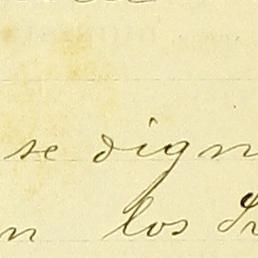 se dign
n los